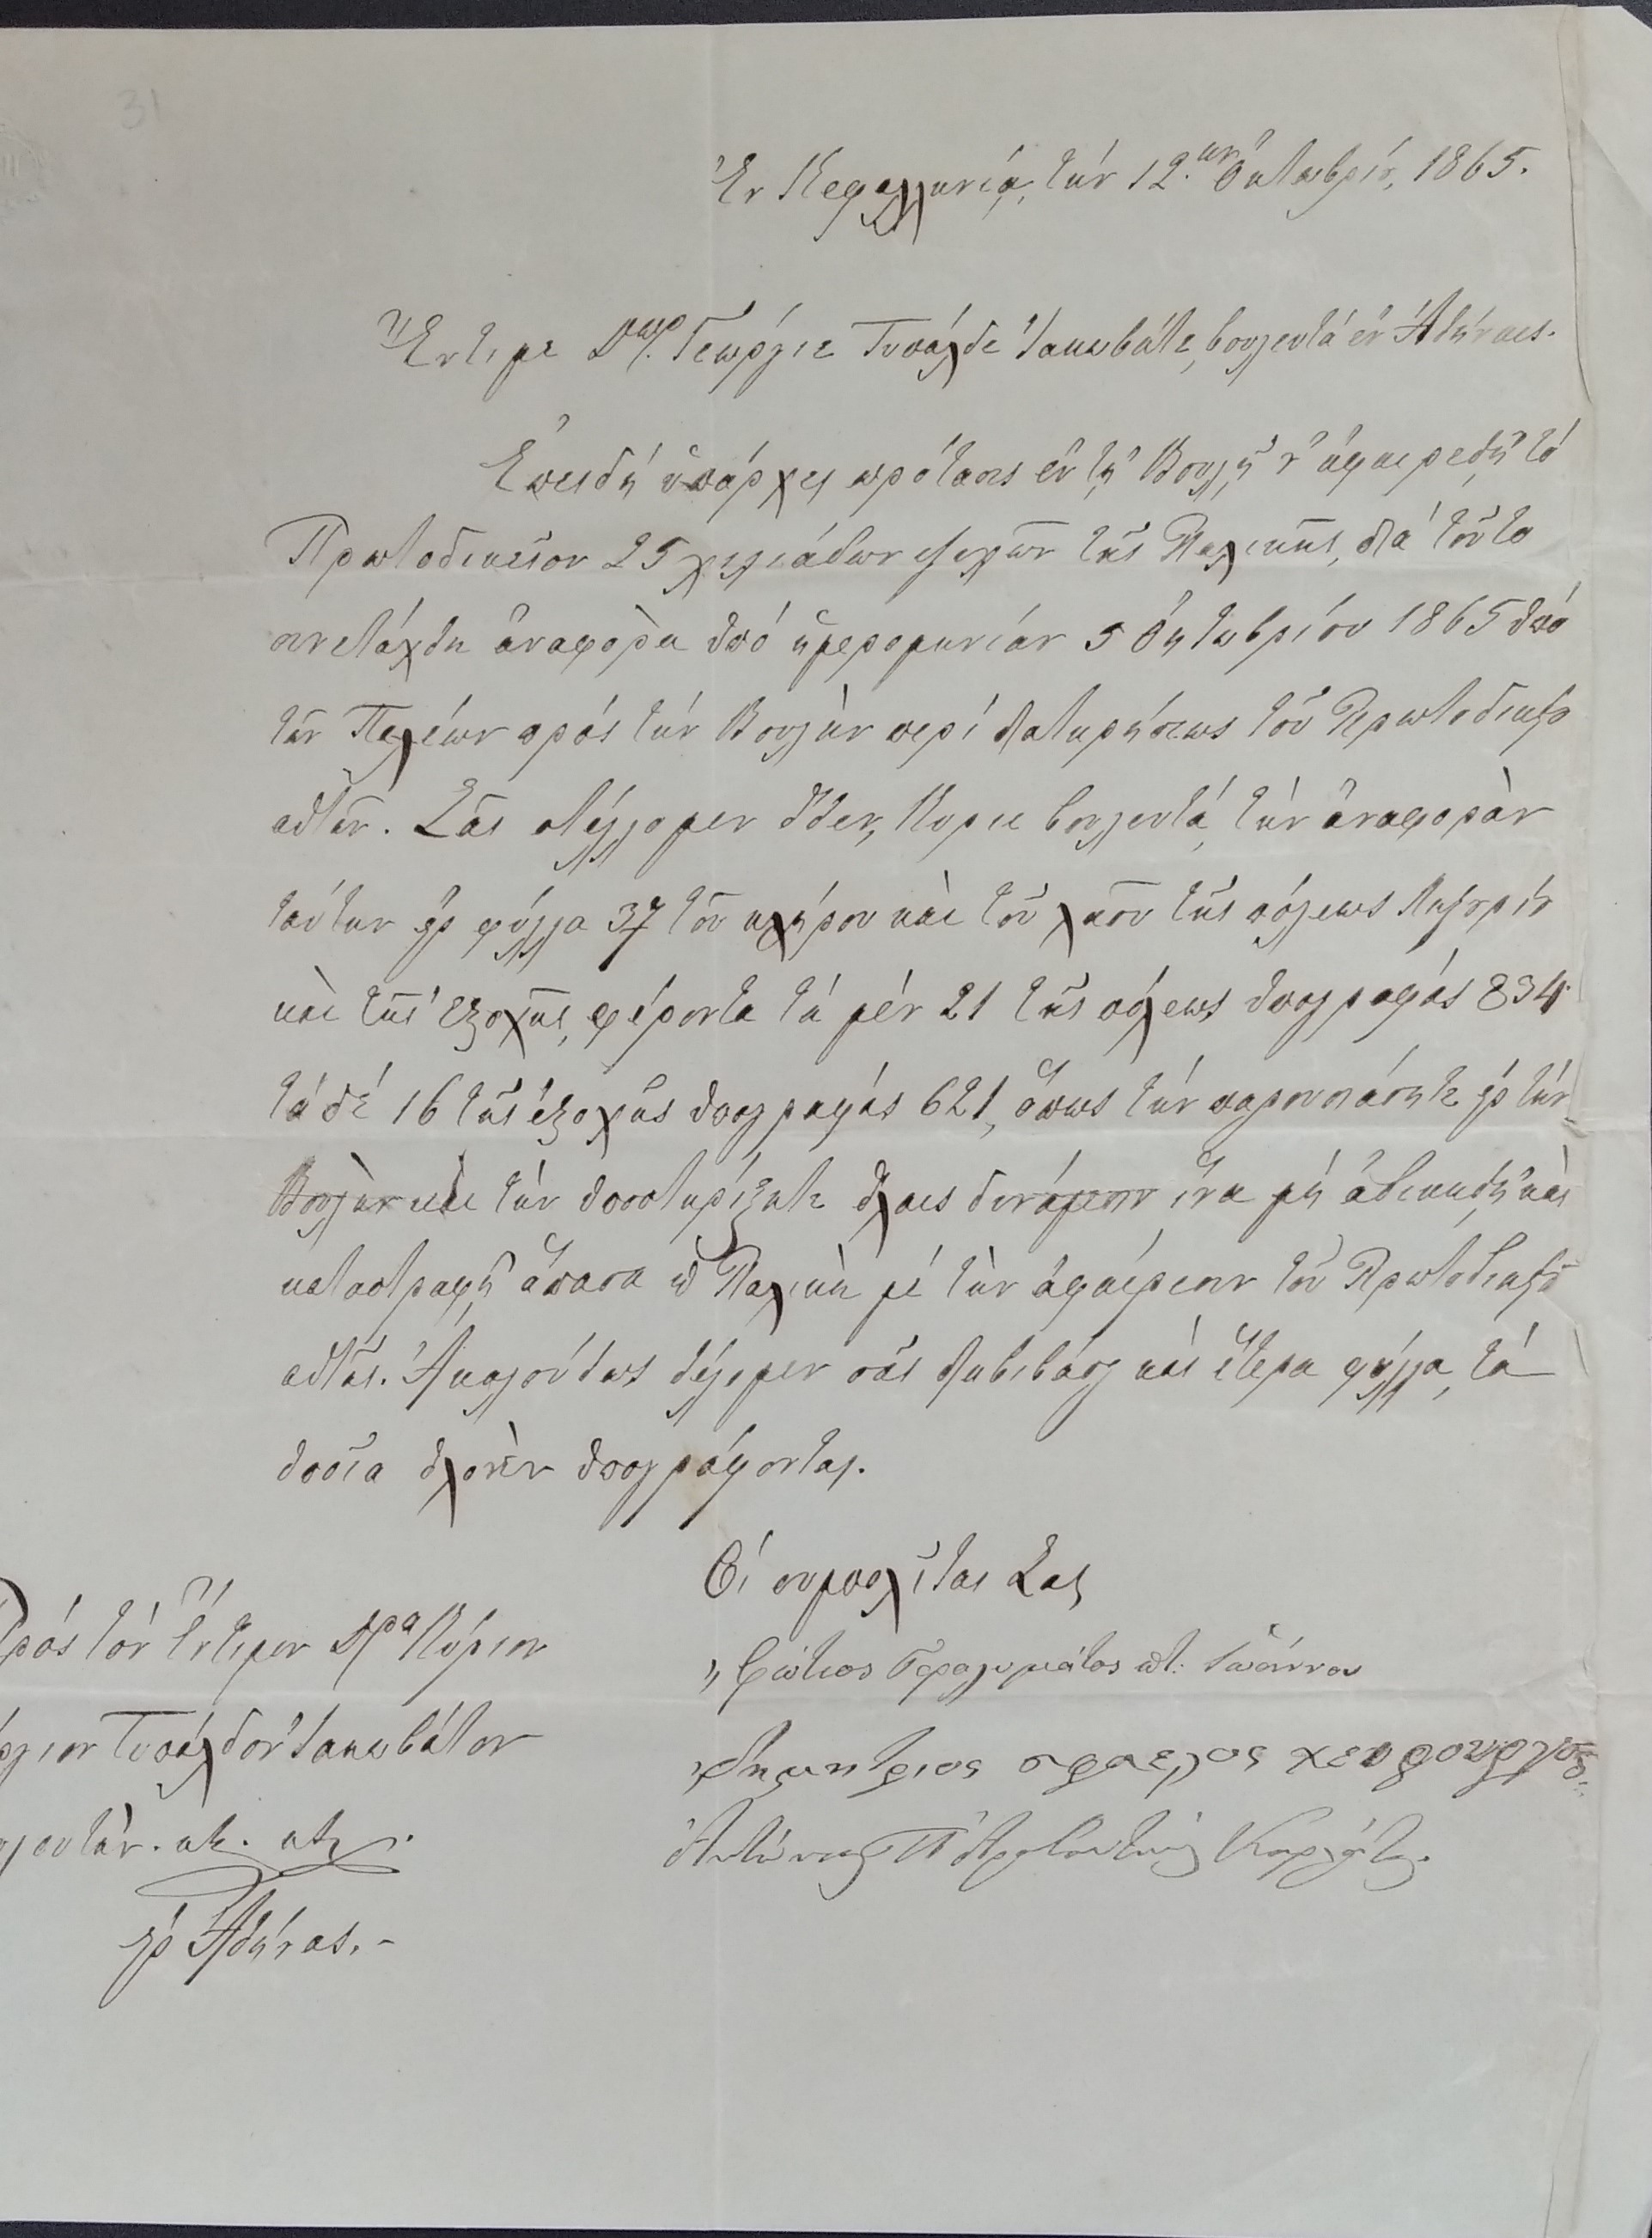 31
Ἐν Κεφαλληνίᾳ, τὴν 12.ην Ὀκτωβρίου, 1865.
Ἔντιμε Δωρ. Γεώργιε Τυπάλδε Ἰακωβάτε, βουλευτὰ ἐν Ἀθήναις.
Ἐπειδὴ ὑπάρχει πρότασις ἐν τῇ Βουλῇ ν' ἀφαιρεθῇ τὸ
Πρωτοδικεῖον 25 χιλιάδων ψυχῶν τῆς Παλικῆς, διὰ τοῦτο
συνετάχθη ἀναφορὰ ὑπὸ ἡμερομηνίαν 5 Ὀκτωβρίου 1865 ὑπὸ
τῶν Παλέων πρὸς τὴν Βουλὴν περὶ διατηρήσεως τοῦ Πρωτοδικείου
αὐτῶν. Σᾶς στέλλομεν ὅθεν, Κύριε βουλευτά, τὴν ἀναφορὰν
ταύτην εἰς φύλλα 37 τοῦ κλήρου καὶ τοῦ λαοῦ τῆς πόλεως Ληξουρίου
καὶ τῆς ἐξοχῆς, φέροντα τὰ μὲν 21 τῆς πόλεως ὑπογραφὰς 834
τὰ δὲ 16 τῆς ἐξοχῆς ὑπογραφὰς 621, ὅπως τὴν παρουσιάσητε εἰς τὴν
Βουλὴν καὶ τὴν ὑποστηρίξητε ὅλαις δυνάμεσιν ἵνα μὴ ἀδικηθῇ καὶ
καταστραφῇ ἅπασα ἡ Παλικὴ μὲ τὴν ἀφαίρεσιν τοῦ Πρωτοδικείου
αὐτῆς. Ἀκολούθως θέλομεν σᾶς διαβιβάσῃ καὶ ἕτερα φύλλα, τὰ
ὁποῖα ὁλονὲν ὑπογράφονται.
Οἱ συμπολῖται Σας
Πρὸς τὸν Ἔντιμον Δρα Κύριον
Τυπάλδον Ἰακωβάτον
κτ. κτλ.
εἰς Ἀθήνας.-
" Φώτιος ποτ: Ἰωάννου
Δημήτριος χειρουργὸς